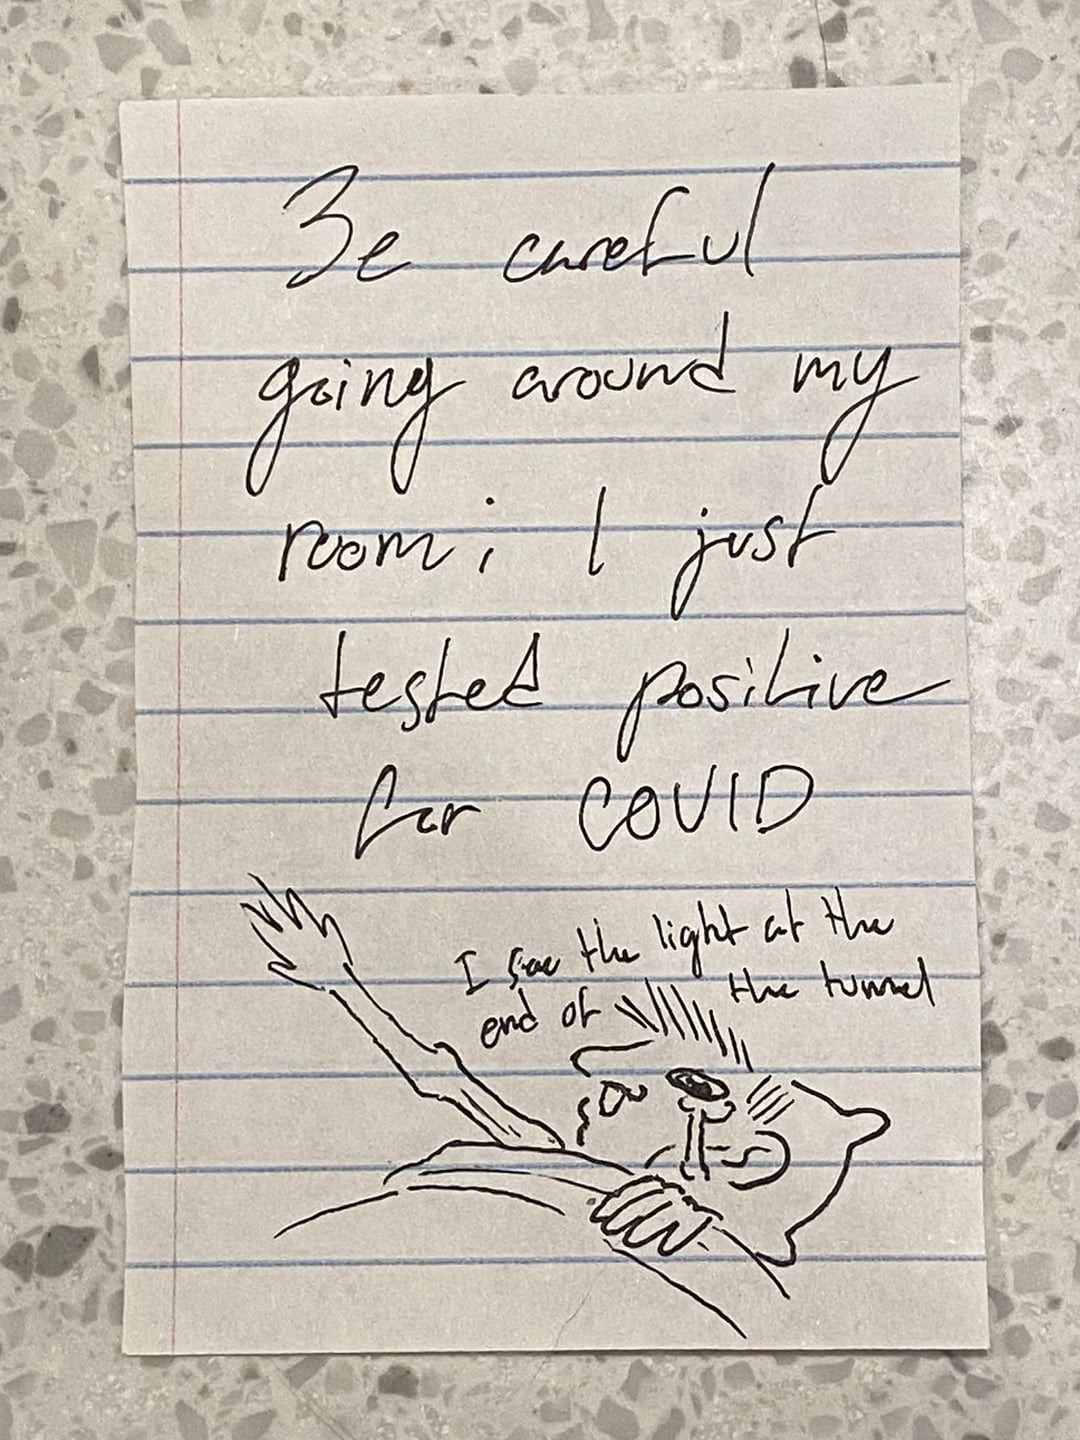 Be careful
going around my
room; I just
tested positive
for COVID
I see the light at the
end of the tunnel